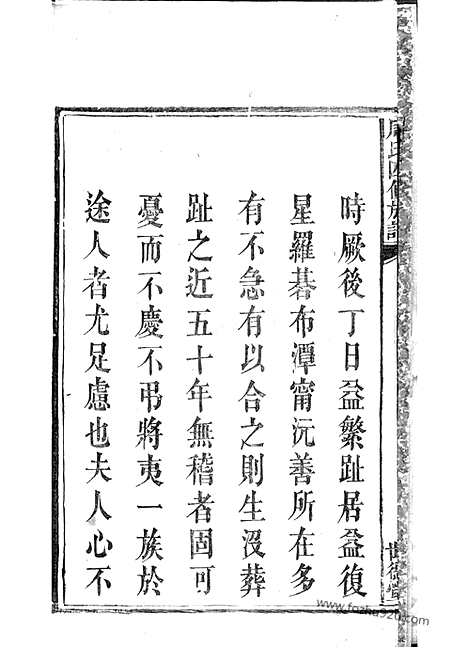 時厥後丁日益繁趾居益復
星羅碁布潭甯沅善所在多
有不急有以合之則生沒葬
趾之近五十年無稽者固可
憂而不慶不弔將夷一族於
途人者尤足慮也夫人心不
世德堂
www.fozhu920.com